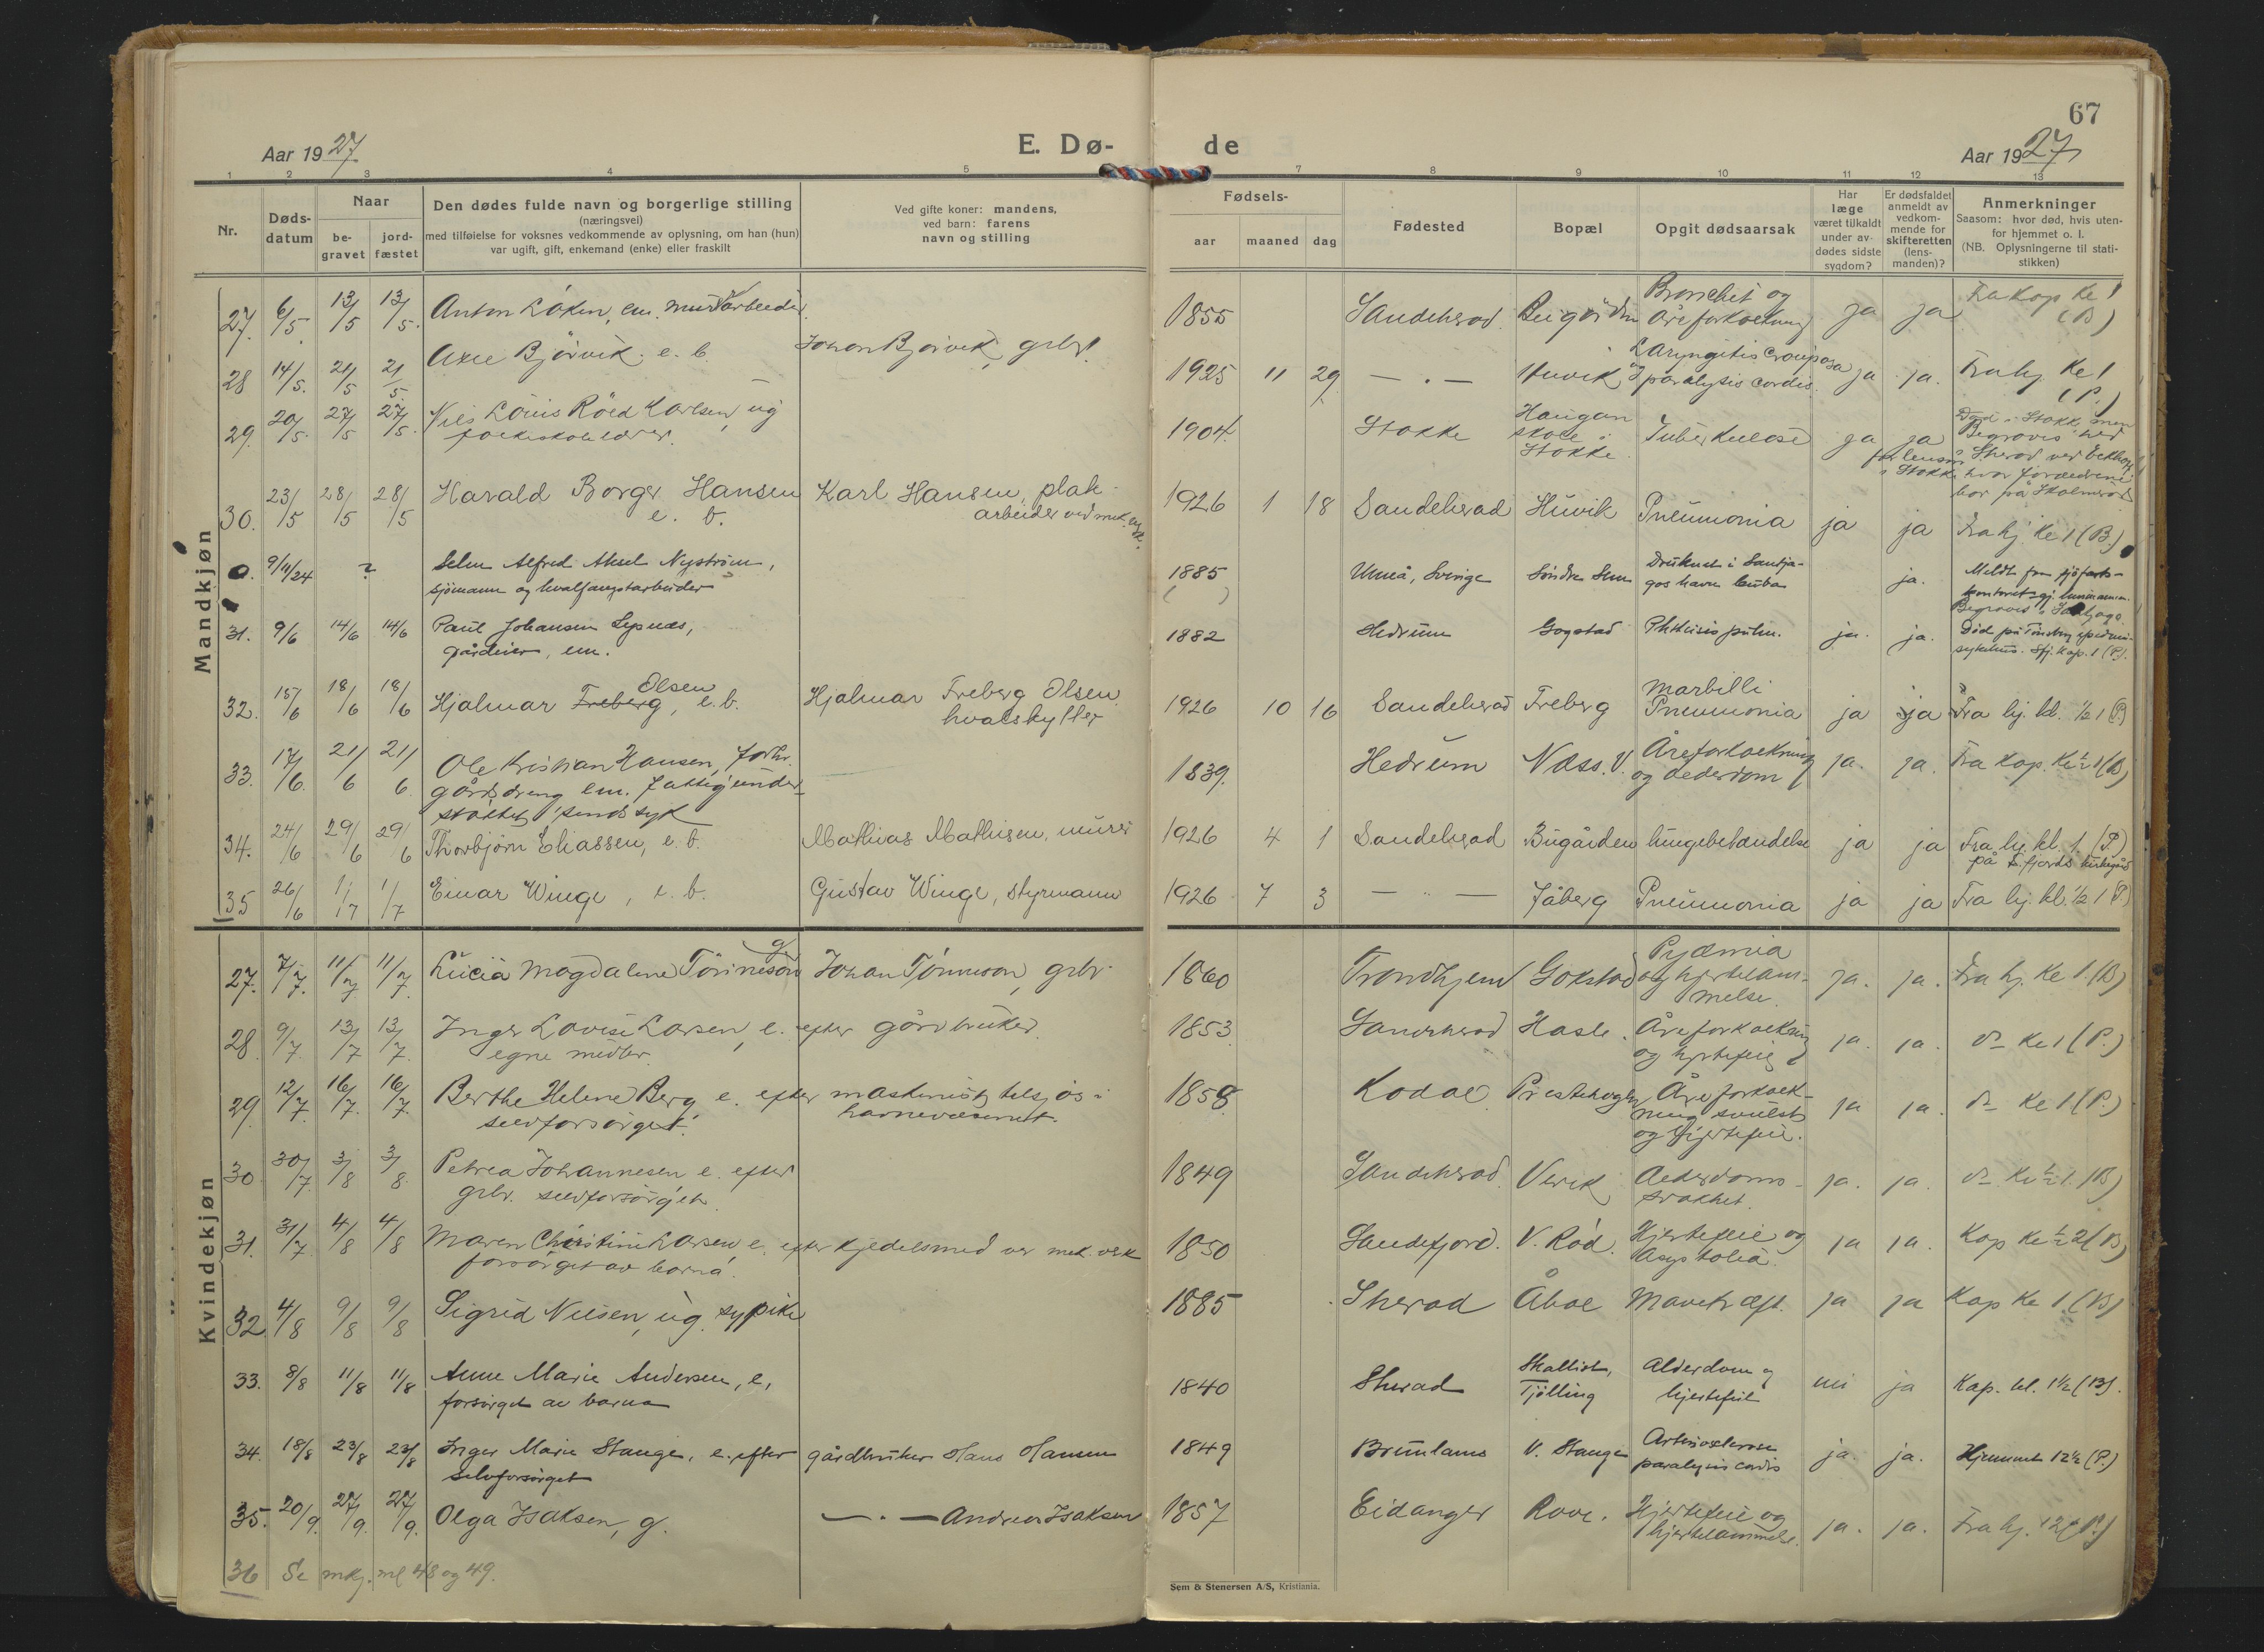 67
Aar 1927
E. Dø-
de
Aar 1927
1 2 3 4 5 7 8 9 10 11 12 13
Nr.
Døds-
datum
Naar
be-
gravet
jord-
fæstet
Den dødes fulde navn og borgerlige stilling
(næringsvei)
med tilføielse for voksnes vedkommende av oplysning, om han (hun)
var ugift, gift, enkemand (enke) eller fraskilt
Ved gifte koner: mandens,
ved barn: farens
navn og stilling
Fødsels-
aar maaned dag
Fødested
Bopæl
Opgit dødsaarsak
Har
læge
været tilkaldt
under av-
dødes sidste
sygdom?
Er dødsfaldet
anmeldt av
vedkom-
mende for
skifteretten
(lens-
manden)?
Anmerkninger
Saasom: hvor død, hvis uten-
for hjemmet o. l.
(NB. Oplysningerne til stati-
stikken)
Mandkjøn
27. 6/5 13/5 13/5. Anton Løken, em. murarbeider. 1855 Sandeherad Bugården Bronchit og
åreforkalkning ja ja Fra kap kl 1
(B)
28 14/5. 21/5 21/5. Bjørvik e. b. Johan Bjørvik, grbr. 1925 11 29 — „ — Huvik Laryngitis crouposa
og paralysis cordis. ja ja. Fra hj. kl 1
(P.)
29. 20/5. 27/5 27/5. Nils Louis Røed Karlsen, ug
folkeskolelærer. 1904. Stokke Haugan
skole i
Stokke Tuberkulose ja ja
for lensm.
i Stokke
Død i Stokke men
Begraves ved
Sherad ved
hvor forældrene
bor på
30. 23/5 28/5 28/5 Harald Borger Hansen
e. b. Karl Hansen, plate-
arbeider ved mek. verk. 1926 1 18 Sandeherad Huvik Pneumonia ja ja Fra hj. kl 1 (B.)
0. 9/11/24 ? Selm Alfred Aksel Nystrøm,
sjömann og hvalfangstarbeider 1885
( ) Umeå, Sverige Söndre Sem Druknet i Santja-
gos havn Cuba ja. Meldt fra sjöfarts-
kontoret gj. lensmannen.
Begravet i
31. 9/6 14/6 14/6 Paul Johansen
gårdeier, em. 1882 Hedrum Gogstad Phthisis pulm. ja. ja. Död på Tönsberg epidemi-
sykehus. Kap. 1 (P.).
32. 15/6 18/6 18/6 Hjalmar Freberg Olsen, e. b. Hjalmar Freberg Olsen
hvalskytter 1926 10 16 Sandeherad Freberg Morbilli
Pneumonia ja ja Fra hj. kl. ½ 1 (P)
33. 17/6. 21/6 21/6 Ole Kristian Hansen, forhv.
gårdsdreng em. fattigunder-
støttet, sindssyk 1839. Hedrum Næss. V. Åreforkalkning
og alderdom ja. ja. Fra kap. kl ½ 1 (B)
34. 24/6 29/6 29/6 Thorbjørn Eliassen, e. b. Mathias Mathisen, murer 1926 4 1 Sandeherad Bugården lungebetændelse ja ja Fra hj. kl. 1. (P)
på S.fjords kirkegård
35 26/6 1/7 1/7 Einar Winge, e. b. Gustav Winge, styrmann 1926 7 3 — „ — Jåberg Pneumonia ja ja Fra hj. kl. ½ 1 (P.)
Kvindekjøn
27. 7/7. 11/7 11/7 Lucia Magdalene Tönneson g. Johan Tönneson, grbr. 1860 Trondhjem Gokstad Pyæmia
og hjertelam-
melse. ja. ja. Fra hj. kl 1. (B)
28. 9/7. 13/7 13/7. Inger Lovise Larsen, e. efter gårdbruker
egne midler. 1853. Sandeherad Hasle. Åreforkalkning
og hjertefeil ja. ja. do kl 1 (P.)
29. 12/7. 16/7. 16/7. Berthe Helene Berg, e. efter maskinist tilsjøs i
selvforsörget. havnevæsenet. 1858. Kodal Prestehagen Åreforkalk-
ning svulst
og Hjertefeil. ja ja. do kl 1 (P.)
30 30/7. 3/8 3/8. Petrea Johannesen e. efter
grbr. selvforsörget. 1849 Sandeherad. Virik Alderdoms-
svakhet. ja. ja. do kl ½ 1. (B)
31. 31/7. 4/8 4/8 Maren Christine Larsen e. efter kjedelsmed ved mek. verk
forsörget av barna. 1850 Sandefjord. V. Rød. Hjertefeil og
Asystolia. ja ja. Kap kl ½ 2 (B)
32 4/8 9/8 9/8 Sigrid Nilsen, ug. sypike 1885 Sherad Åbol Mavekræft. ja ja Kap kl 1 (B)
33. 8/8 11/8 11/8 Anne Marie Andersen, e,
forsörget av barna 1840 Sherad Skallist,
Tjölling Alderdom og
hjertefeil nei ja Kap. kl. 1½ (B).
34. 18/8 23/8 23/8 Inger Marie Stange, e. efter gårdbruker Hans Hansen
selvforsörget 1849 Brunlanes V. Stange Arteriosclerose
paralysis cordis ja ja. Hjemmet 12½ (P.)
35. 20/9. 27/9. 27/9. Olga Isaksen, g. — „ — Andreas Isaksen 1857 Eidanger Rove. Hjertefeil og
hjertelammelse. ja. ja. Fra hj. 12 (P.)
36 Se mkj. nr 48 og 49.
Sem & Stenersen A/S, Kristiania.